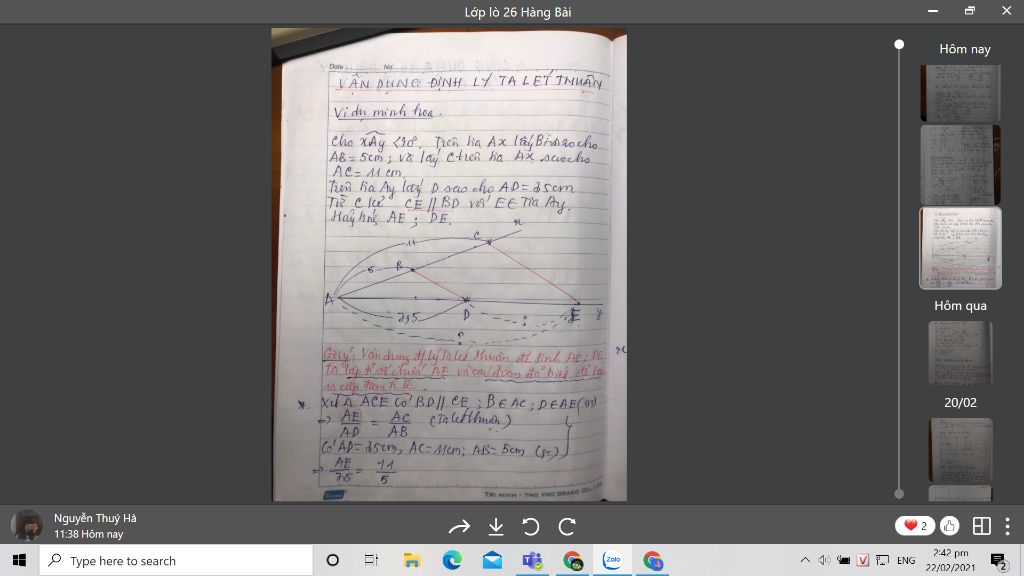 Lớp lò 26 Hàng Bài
Hôm nay
Hôm qua
20/02
Date No.
VẬN DỤNG ĐỊNH LÝ TA LÉT THUẬN
Ví dụ minh hoạ.
Cho xAy <90°. Trên tia Ax lấy B sao cho
AB = 5cm; và lấy C trên tia Ax sao cho
AC = 11 cm.
Trên tia Ay lấy D sao cho AD = 3,5cm
Từ C kẻ CE // BD với E ∈ tia Ay.
Hãy tính AE ; DE.
x
C
11
B
5
A
3,5
D
?
E
y
?
Gợi ý: Vận dụng định lý Talet thuận để tính AE; DE
ta lập tỉ số chứa AE và các đoạn đã biết để tạo
ra cặp đoạn tỉ lệ.
* Xét Δ ACE có BD // CE ; B ∈ AC ; D ∈ AE (gt)
=> AE/AD = AC/AB (Ta lét thuận)
Có AD = 3,5cm, AC = 11cm; AB = 5cm (gt)
=> AE/3,5 = 11/5
TRI MINH - TMG PRO BRAND CO.,
Nguyễn Thuý Hà
11:38 Hôm nay
2
Type here to search
Zalo
ENG
2:42 pm
22/02/2021
2